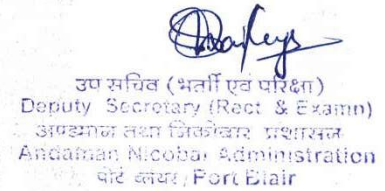 उप सचिव (भर्ती एवं परिक्षा)
Deputy Secretary (Rect & Examn)
अण्डमान तथा निकोबार प्रशासन
Andaman Nicobar Administration
पोर्ट ब्लेयर/Port Blair